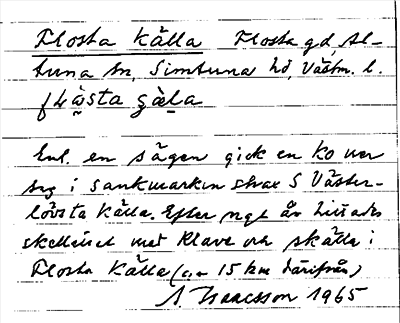 Flosta källa Flosta gd, Al-
tuna sn, Simtuna hd, Västm. l.
flås̱ta çäḻa
Enl. en sägen gick en ko ner
sig i sankmarken strax S Väster-
lövsta källa. Efter ngt år hittades
skelettet med klave och skälla i
Flosta källa (ca 15 km därifrån)
A. Isaacsson 1965